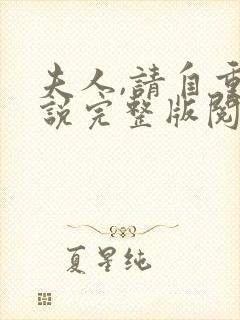 夫人,請自重
說完整版閱
夏星純